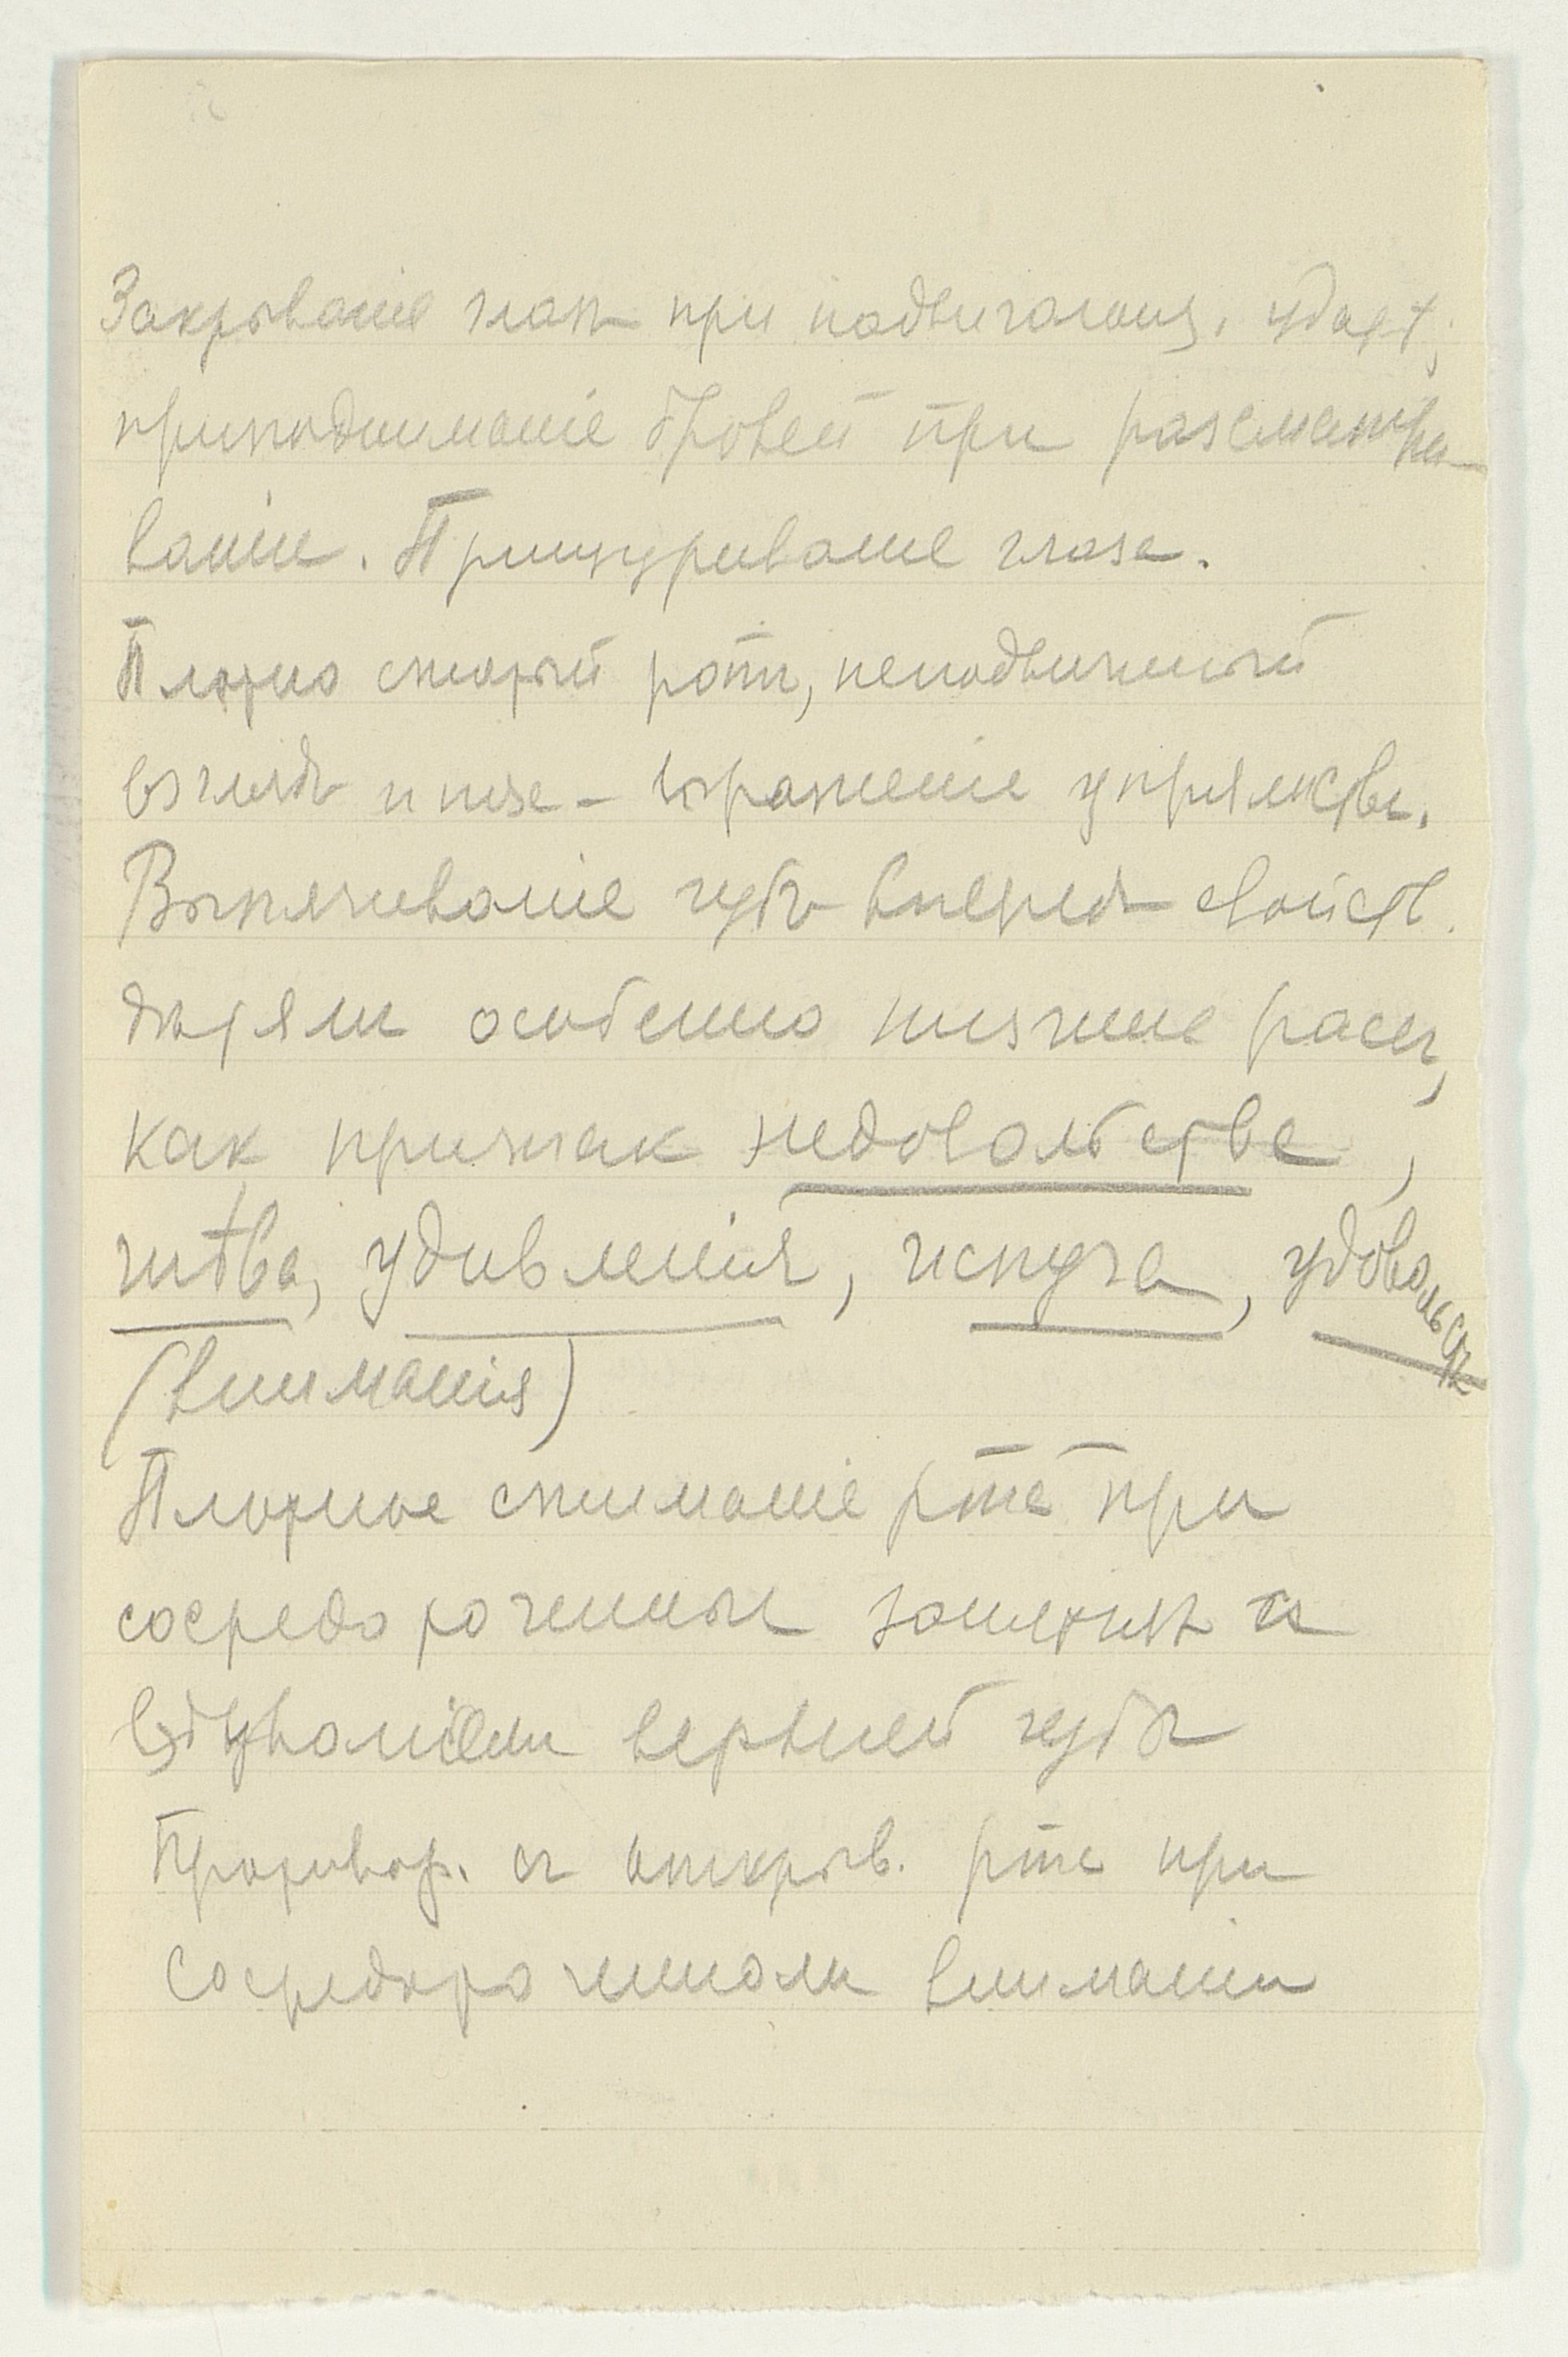 Закрыванiе глазъ при надвигающ. удает,
приподниманiе бровей при разсматри-
ванiи. Прищуриванiе глаза.
Плотно сжатый ротъ, неподвижный
взглядъ ише - выраженiе упрямства.
Выпячиванiе губъ впередъ свойств.
дѣтямъ особенно низшие расы,
как признак недовольства,
гнѣва, удивленiя, испуга, удовольств
(вниманiя)
Плотное сжиманiе рта при
сосредоточенном занятiи съ
верхней губы
Противор. съ открыв. рта при
сосредоточенном вниманiи